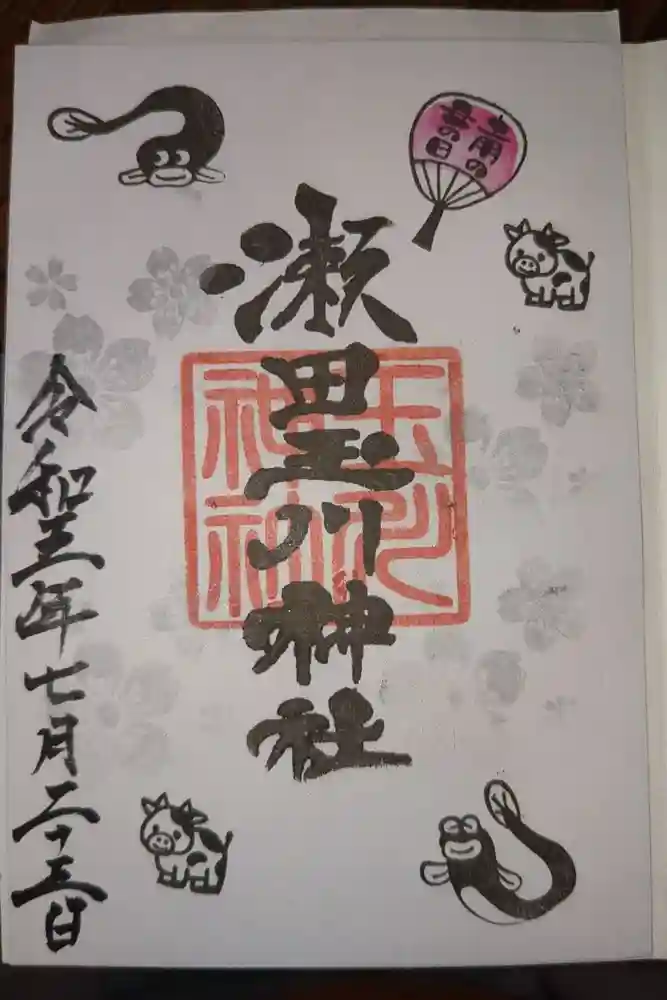 土用の
丑の日
瀬田玉川神社
玉川
神社
令和三年七月二十三日